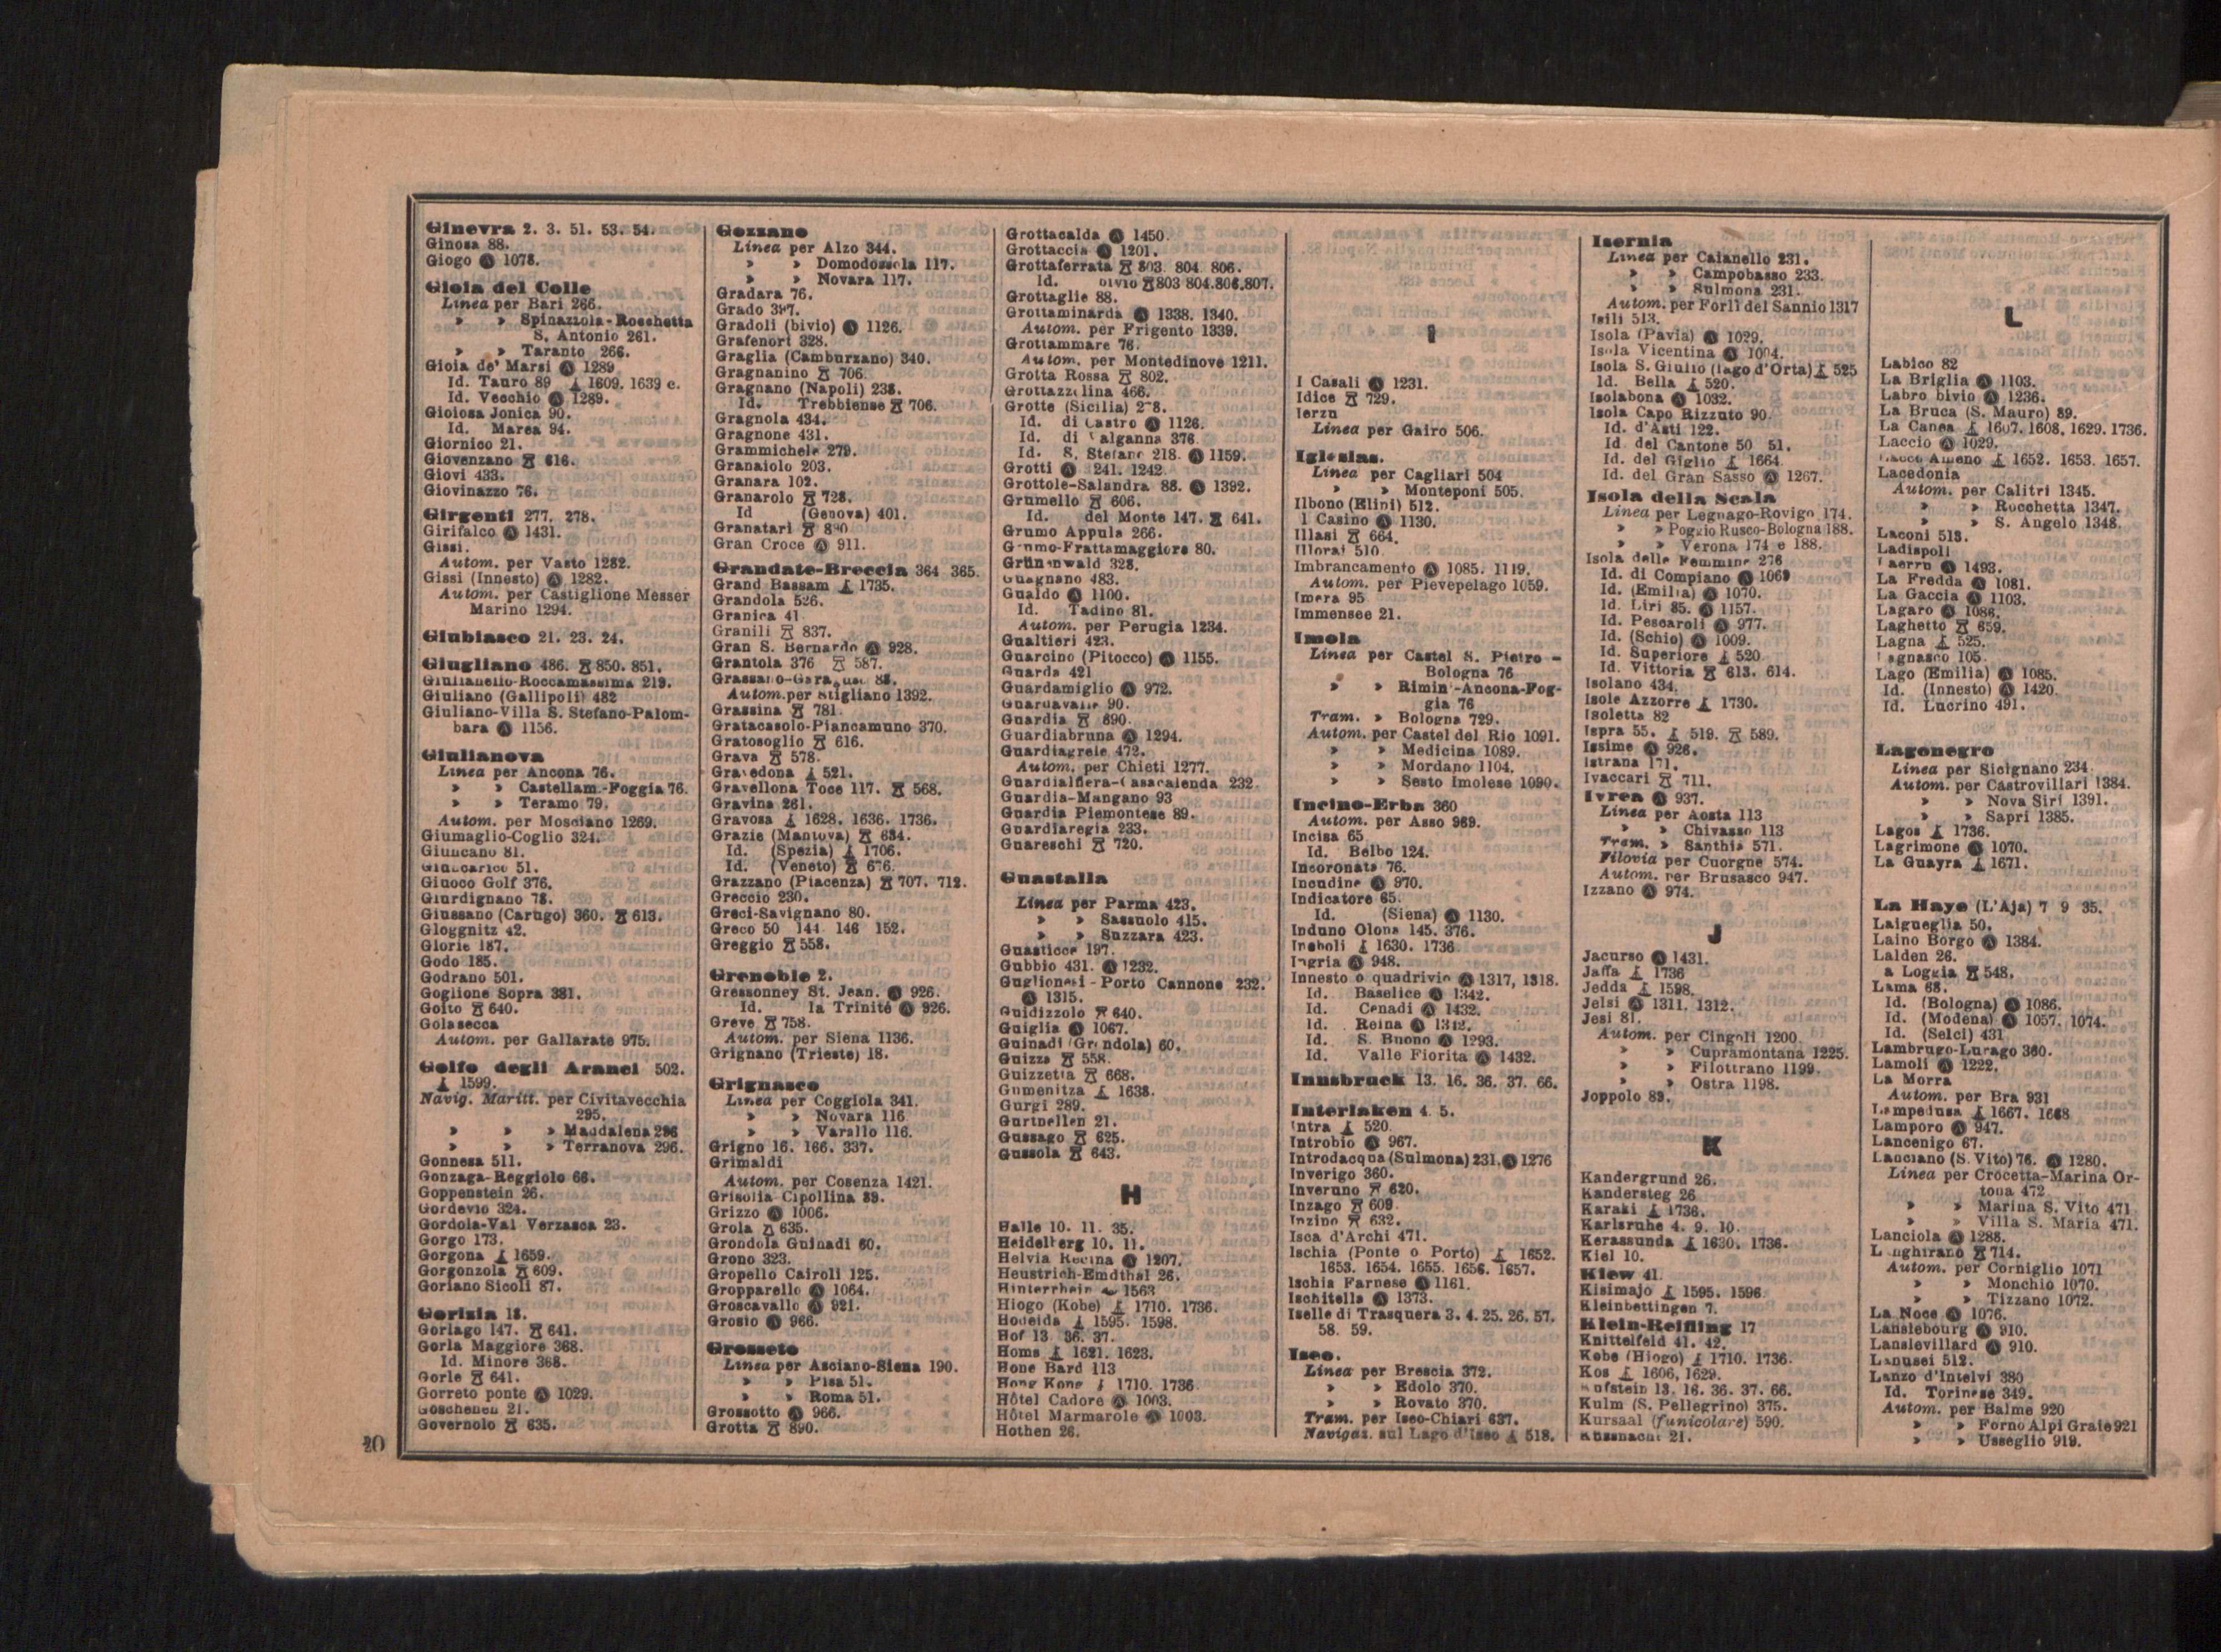 Ginevra 2. 3. 51. 53. 54.
Ginosa 88.
Giogo Ⓐ 1078.
Gioia del Colle
Linea per Bari 266.
» » Spinazzola-Rocchetta
S. Antonio 261.
» » Taranto 266.
Gioia de' Marsi Ⓐ 1289
Id. Tauro 89 1609. 1639 c.
Id. Vecchio Ⓐ 1289.
Gioiosa Jonica 90.
Id. Marea 94.
Giornico 21.
Giovenzano 616.
Giovi 433.
Giovinazzo 76.
Girgenti 277. 278.
Girifalco Ⓐ 1431.
Gissi.
Autom. per Vasto 1282.
Gissi (Innesto) Ⓐ 1282.
Autom. per Castiglione Messer
Marino 1294.
Giubiasco 21. 23. 24.
Giugliano 486. 850. 851.
Giulianello-Roccamassima 219.
Giuliano (Gallipoli) 482
Giuliano-Villa S. Stefano-Palom-
bara Ⓐ 1156.
Giulianova
Linea per Ancona 76.
» » Castellam.-Foggia 76.
» » Teramo 79.
Autom. per Mosciano 1269.
Giumaglio-Coglio 324.
Giuncano 81.
Giuncarico 51.
Giuoco Golf 376.
Giurdignano 78.
Giussano (Carugo) 360. 613.
Gloggnitz 42.
Glorie 187.
Godo 185.
Godrano 501.
Goglione Sopra 381.
Goito 640.
Golasecca
Autom. per Gallarate 975.
Golfo degli Aranci 502.
1599.
Navig. Maritt. per Civitavecchia
295.
» » » Maddalena 296
» » » Terranova 296.
Gonnesa 511.
Gonzaga-Reggiolo 66.
Goppenstein 26.
Gordevio 324.
Gordola-Val Verzasca 23.
Gorgo 173.
Gorgona 1659.
Gorgonzola 609.
Goriano Sicoli 87.
Gorizia 18.
Gorlago 147. 641.
Gorla Maggiore 368.
Id. Minore 368.
Gorle 641.
Gorreto ponte Ⓐ 1029.
Göschenen 21.
Governolo 635.
Gozzano
Linea per Alzo 344.
» » Domodossola 117.
» » Novara 117.
Gradara 76.
Grado 397.
Gradoli (bivio) Ⓐ 1126.
Grafenort 328.
Graglia (Camburzano) 340.
Gragnanino 706.
Gragnano (Napoli) 238.
Id. Trebbiense 706.
Gragnola 434.
Gragnone 431.
Grammichele 279.
Granaiolo 203.
Granara 102.
Granarolo 728.
Id (Genova) 401.
Granatari 890
Gran Croce Ⓐ 911.
Grandate-Breccia 364 365.
Grand Bassam 1735.
Grandola 526.
Granica 41
Granili 837.
Gran S. Bernardo Ⓐ 928.
Grantola 376 587.
Grassano-Garaguso 88.
Autom. per Stigliano 1392.
Grassina 781.
Gratacasolo-Piancamuno 370.
Gratosoglio 616.
Grava 578.
Gravedona 521.
Gravellona Toce 117. 568.
Gravina 261.
Gravosa 1628. 1636. 1736.
Grazie (Mantova) 634.
Id. (Spezia) 1706.
Id. (Veneto) 676.
Grazzano (Piacenza) 707. 712.
Greccio 230.
Greci-Savignano 80.
Greco 50 144 146 152.
Greggio 558.
Grenoble 2.
Gressonney St. Jean. Ⓐ 926.
Id. la Trinité Ⓐ 926.
Greve 758.
Autom. per Siena 1136.
Grignano (Trieste) 18.
Grignasco
Linea per Coggiola 341.
» » Novara 116
» » Varallo 116.
Grigno 16. 166. 337.
Grimaldi
Autom. per Cosenza 1421.
Grisolia Cipollina 89.
Grizzo Ⓐ 1006.
Grola 635.
Grondola Guinadi 60.
Grono 323.
Gropello Cairoli 125.
Gropparello Ⓐ 1064.
Groscavallo Ⓐ 921.
Grosio Ⓐ 966.
Grosseto
Linea per Asciano-Siena 190.
» » Pisa 51.
» » Roma 51.
Grossotto Ⓐ 966.
Grotta 890.
Grottacalda Ⓐ 1450.
Grottaccia Ⓐ 1201.
Grottaferrata 803. 804. 806.
Id. bivio 803 804. 806. 807.
Grottaglie 88.
Grottaminarda Ⓐ 1338. 1340.
Autom. per Frigento 1339.
Grottammare 76.
Autom. per Montedinove 1211.
Grotta Rossa 802.
Grottazzolina 466.
Grotte (Sicilia) 278.
Id. di Castro Ⓐ 1126.
Id. di Valganna 376
Id. S. Stefano 218. Ⓐ 1159.
Grotti Ⓐ 1241. 1242.
Grottole-Salandra 88. Ⓐ 1392.
Grumello 606.
Id. del Monte 147. 641.
Grumo Appula 266.
Grumo-Frattamaggiore 80.
Grünenwald 328.
Guagnano 483.
Gualdo Ⓐ 1100.
Id. Tadino 81.
Autom. per Perugia 1234.
Gualtieri 423.
Guarcino (Pitocco) Ⓐ 1155.
Guarda 421
Guardamiglio Ⓐ 972.
Guardavalle 90.
Guardia 890.
Guardiabruna Ⓐ 1294.
Guardiagrele 472.
Autom. per Chieti 1277.
Guardialfiera-Casacalenda 232
Guardia-Mangano 93
Guardia Piemontese 89.
Guardiaregia 233.
Guareschi 720.
Guastalla
Linea per Parma 423.
» » Sassuolo 415.
» » Suzzara 423.
Guasticce 197.
Gubbio 431. Ⓐ 1232.
Guglionesi-Porto Cannone 232.
Ⓐ 1315.
Guidizzolo 640.
Guiglia Ⓐ 1067.
Guinadi (Grondola) 60.
Guizza 558.
Guizzetta 668.
Gumenitza 1638.
Gurgi 289.
Gurtnellen 21.
Gussago 625.
Gussola 643.
H
Halle 10. 11. 35.
Heidelberg 10. 11.
Helvia Recina Ⓐ 1207.
Heustrich-Emdthal 26.
Hinterrhein 1563
Hiogo (Kobe) 1710. 1736.
Hodeida 1595. 1598.
Hof 13 36. 37.
Homs 1621. 1623.
Hone Bard 113
Hong Kong 1710. 1736
Hôtel Cadore Ⓐ 1003.
Hôtel Marmarole Ⓐ 1003.
Hothen 26.
I
I Casali Ⓐ 1231.
Idice 729.
Ierzu
Linea per Gairo 506.
Iglesias.
Linea per Cagliari 504
» » Monteponi 505.
Ilbono (Elini) 512.
Il Casino Ⓐ 1130.
Illasi 664.
Illorai 510.
Imbrancamento Ⓐ 1085. 1119.
Autom. per Pievepelago 1059.
Imera 95
Immensee 21.
Imola
Linea per Castel S. Pietro -
Bologna 76
» » Rimini-Ancona-Fog-
gia 76
Tram. » Bologna 729.
Autom. per Castel del Rio 1091.
» » Medicina 1089.
» » Mordano 1104.
» » Sesto Imolese 1090.
Incino-Erba 360
Autom. per Asso 969.
Incisa 65
Id. Belbo 124.
Incoronata 76.
Incudine Ⓐ 970.
Indicatore 65.
Id. (Siena) Ⓐ 1130.
Induno Olona 145. 376.
Ineboli 1630. 1736
Ingria Ⓐ 948.
Innesto o quadrivio Ⓐ 1317, 1318.
Id. Baselice Ⓐ 1342.
Id. Cenadi Ⓐ 1432.
Id. Reina Ⓐ 1312.
Id. S. Buono Ⓐ 1293.
Id. Valle Fiorita Ⓐ 1432.
Innsbruck 13. 16. 36. 37. 66.
Interlaken 4. 5.
Intra 520.
Introbio Ⓐ 967.
Introdacqua (Sulmona) 231. Ⓐ 1276
Inverigo 360.
Inveruno 620.
Inzago 609
Inzino 632.
Isca d'Archi 471.
Ischia (Ponte o Porto) 1652.
1653. 1654. 1655. 1656. 1657.
Ischia Farnese Ⓐ 1161.
Ischitella Ⓐ 1373.
Iselle di Trasquera 3. 4. 25. 26. 57.
58. 59.
Iseo.
Linea per Brescia 372.
» » Edolo 370.
» » Rovato 370.
Tram. per Iseo-Chiari 637.
Navigaz. sul Lago d'Iseo 518.
Isernia
Linea per Caianello 231.
» » Campobasso 233.
» » Sulmona 231.
Autom. per Forlì del Sannio 1317
Isili 513.
Isola (Pavia) Ⓐ 1029.
Isola Vicentina Ⓐ 1004.
Isola S. Giulio (lago d'Orta) 525
Id. Bella 520.
Isolabona Ⓐ 1032.
Isola Capo Rizzuto 90.
Id. d'Asti 122.
Id del Cantone 50 51.
Id. del Giglio 1664
Id. del Gran Sasso Ⓐ 1267.
Isola della Scala
Linea per Legnago-Rovigo 174.
» » Poggio Rusco-Bologna 188.
» » Verona 174 e 188.
Isola delle Femmine 276
Id. di Compiano Ⓐ 1069
Id. (Emilia) Ⓐ 1070.
Id. Liri 85. Ⓐ 1157.
Id. Pescaroli Ⓐ 977.
Id. (Schio) Ⓐ 1009.
Id. Superiore 520
Id. Vittoria 613. 614.
Isolano 434.
Isole Azzorre 1730.
Isoletta 82
Ispra 55. 519. 589.
Issime Ⓐ 926.
Istrana 171.
Ivaccari 711.
Ivrea Ⓐ 937.
Linea per Aosta 113
» » Chivasso 113
Tram. » Santhià 571.
Filovia per Cuorgnè 574.
Autom. per Brusasco 947.
Izzano Ⓐ 974.
J
Jacurso Ⓐ 1431.
Jaffa 1736
Jedda 1598.
Jelsi Ⓐ 1311. 1312.
Jesi 81.
Autom. per Cingoli 1200
» » Cupramontana 1225.
» » Filottrano 1199.
» » Ostra 1198.
Joppolo 89.
K
Kandergrund 26.
Kandersteg 26
Karaki 1736.
Karlsruhe 4. 9. 10.
Kerassunda 1630. 1736.
Kiel 10.
Kiew 41.
Kisimajo 1595. 1596.
Kleinbettingen 7.
Klein-Reifling 17
Knittelfeld 41. 42.
Kobe (Hiogo) 1710. 1736.
Kos 1606, 1629.
Kufstein 13. 16. 36. 37. 66.
Kulm (S. Pellegrino) 375.
Kursaal (funicolare) 590.
Küssnacht 21.
L
Labico 82
La Briglia Ⓐ 1103.
Labro bivio Ⓐ 1236.
La Bruca (S. Mauro) 89.
La Canea 1607. 1608. 1629. 1736.
Laccio Ⓐ 1029.
Lacco Ameno 1652. 1653. 1657.
Lacedonia
Autom. per Calitri 1345.
» » Rocchetta 1347.
» » S. Angelo 1348.
Laconi 513.
Ladispoli
Laerru Ⓐ 1493.
La Fredda Ⓐ 1081.
La Gaccia Ⓐ 1103.
Lagaro Ⓐ 1086.
Laghetto 659.
Lagna 525.
Lagnasco 105
Lago (Emilia) Ⓐ 1085.
Id. (Innesto) Ⓐ 1420.
Id. Lucrino 491.
Lagonegro
Linea per Sicignano 234
Autom. per Castrovillari 1384.
» » Nova Siri 1391.
» » Sapri 1385.
Lagos 1736.
Lagrimone Ⓐ 1070.
La Guayra 1671.
La Haye (L'Aja) 7 9 35.
Laigueglia 50.
Laino Borgo Ⓐ 1384.
Lalden 26.
La Loggia 548.
Lama 68.
Id. (Bologna) Ⓐ 1086.
Id. (Modena) Ⓐ 1057. 1074.
Id. (Selci) 431
Lambrugo-Lurago 360.
Lamoli Ⓐ 1222.
La Morra
Autom. per Bra 931
Lampedusa 1667. 1668
Lamporo Ⓐ 947.
Lancenigo 67.
Lanciano (S. Vito) 76. Ⓐ 1280.
Linea per Crocetta-Marina Or-
tona 472
» » Marina S. Vito 471
» » Villa S. Maria 471.
Lanciola Ⓐ 1288.
Langhirano 714.
Autom. per Corniglio 1071
» » Monchio 1070.
» » Tizzano 1072.
La Noce Ⓐ 1076.
Lanslebourg Ⓐ 910.
Lanslevillard Ⓐ 910.
Lanusei 512.
Lanzo d'Intelvi 380
Id. Torinese 349.
Autom. per Balme 920
» » Forno Alpi Graie 921
» » Usseglio 919.
20